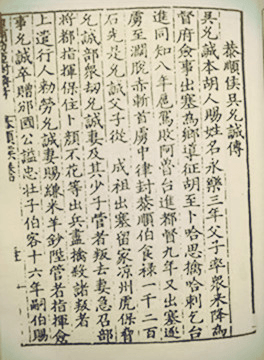 恭順侯吳允誠傳
吳允誠本胡人賜名永樂三年父子率眾來降為
督府僉事出塞為鄉導征胡至卜哈思擒哈剌乞台
進同知八年扈駕敗阿魯台進都督九年又出塞逐
虜至濶脫赤斬首虜中律封恭順伯食祿一千二百
石先是允誠父子從 成祖出塞留家凉州虎保脅
允誠部眾刼允誠妻及其少子管者叛去妻急召部
將都指揮保住卜顏不花等出兵盡擒殺諸叛者
上遣行人勑勞允誠妻賜縑米羊鈔陞管者指揮僉
事允誠卒贈邠國公謚忠壯子伯客十六年嗣伯賜